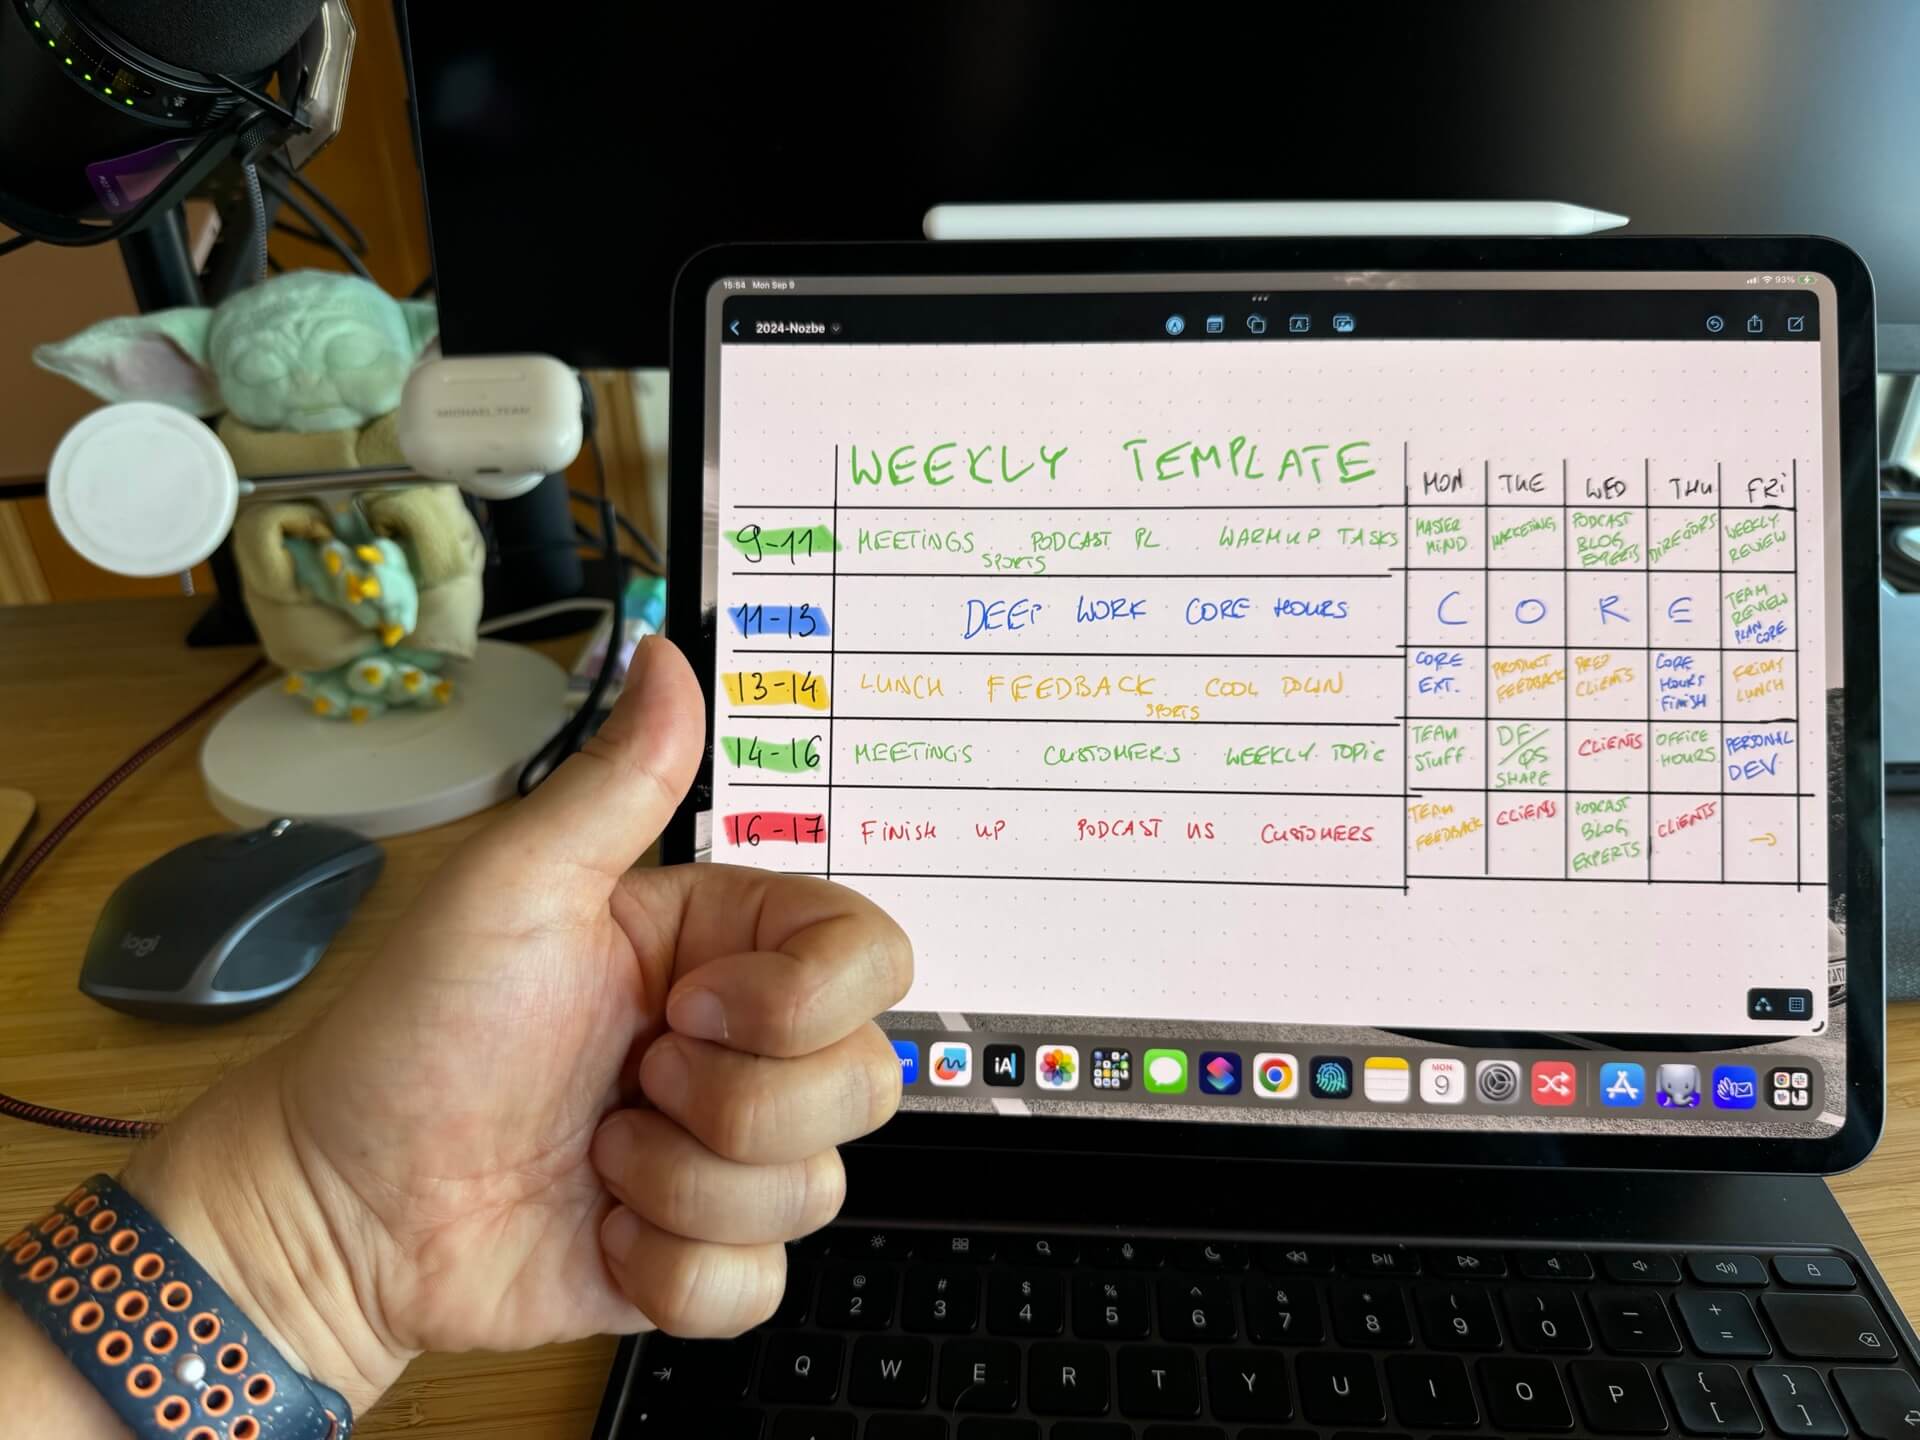 15:54 Mon Sep 9
93%
2024-Nozbe
WEEKLY TEMPLATE
MON TUE WED THU FRI
9-11
MEETINGS PODCAST PL WARMUP TASKS
SPORTS
MASTER MIND
MARKETING
PODCAST BLOG EXPERTS
DIRECTORS
WEEKLY REVIEW
11-13
DEEP WORK CORE HOURS
C O R E
TEAM REVIEW PLAN CORE
13-14
LUNCH FEEDBACK COOL DOWN
SPORTS
CORE EXT.
PRODUCT FEEDBACK
PREP CLIENTS
CORE HOURS FINISH
FRIDAY LUNCH
14-16
MEETINGS CUSTOMERS WEEKLY TOPIC
TEAM STUFF
DF/QS SHAPE
CLIENTS
OFFICE HOURS
PERSONAL DEV
16-17
FINISH UP PODCAST US CUSTOMERS
TEAM FEEDBACK
CLIENTS
PODCAST BLOG EXPERTS
CLIENTS
→
MICHAEL.TEAM
logi
iA
MON
9
@ # $ % ^ & * ( ) — +
2 3 4 5 6 7 8 9 0 - =
Q W E R T Y U I O P { [ } ]